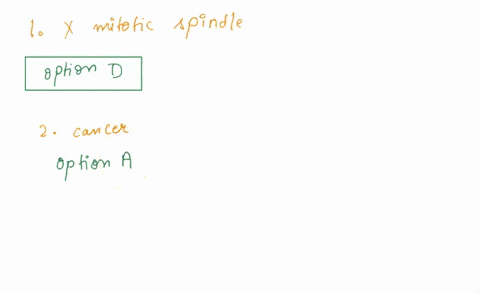 1. X mitotic spindle
option D
2. cancer
option A